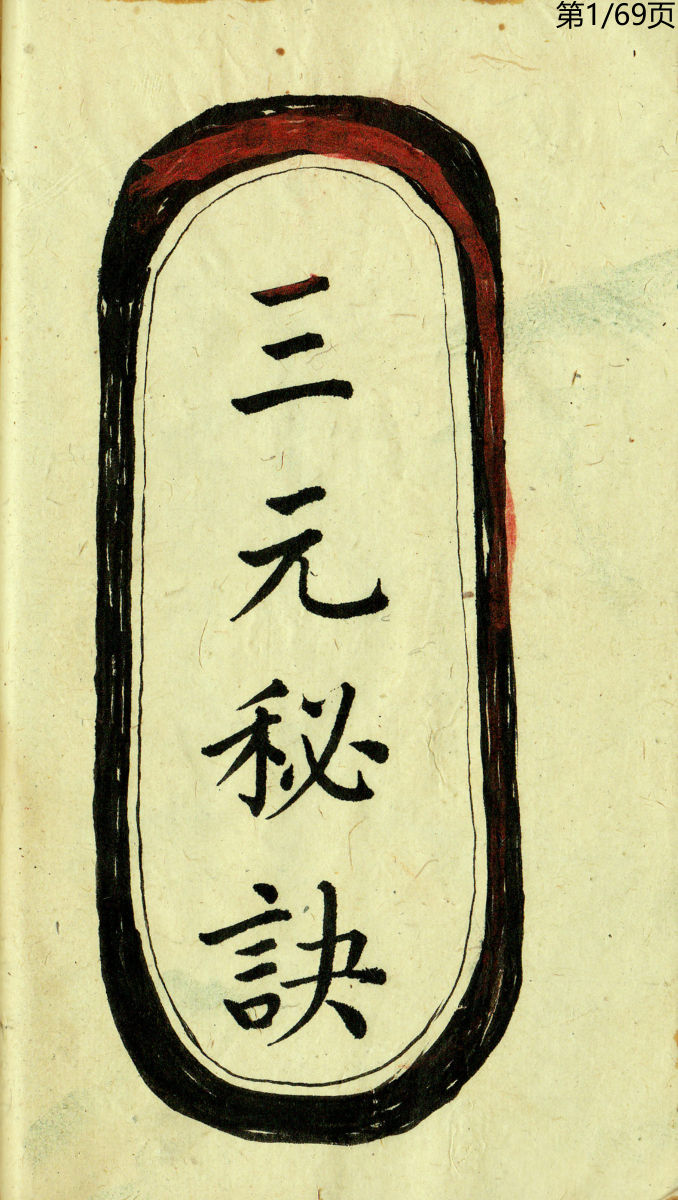 第1/69页
三元秘訣